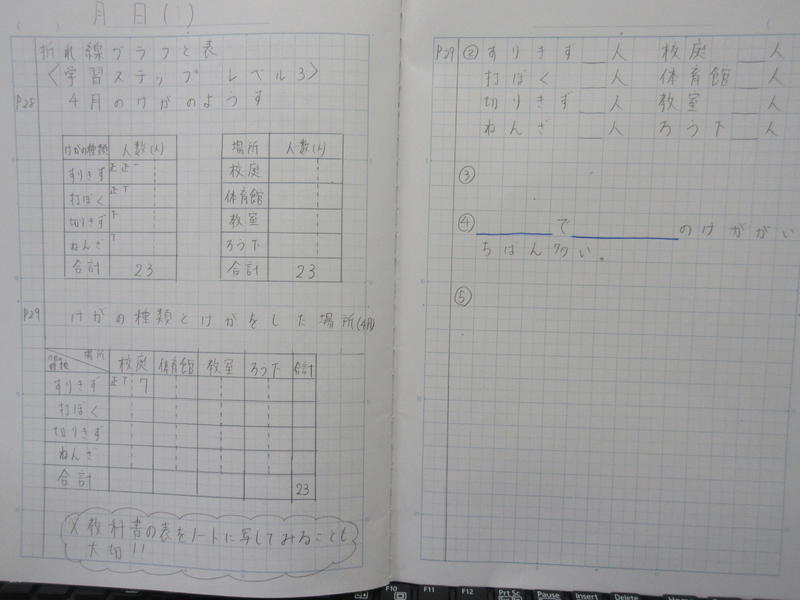 月 日 ( )
折れ線グラフと表
〈学習ステップ レベル3〉
P28 4月のけがのようす
けがの種類 人数(人)
すりきず 正正一
打ぼく 正丅
切りきず
ねんざ
合計 23
場所 人数(人)
校庭
体育館
教室
ろう下
合計 23
P29 けがの種類とけがをした場所(4月)
場所 校庭 体育館 教室 ろう下 合計
種類
すりきず 正丅 7
打ぼく
切りきず
ねんざ
合計 23
※教科書の表をノートに写してみることも
大切!!
P29 ② すりきず__人 校庭__人
打ぼく__人 体育館__人
切りきず__人 教室__人
ねんざ__人 ろう下__人
③
④ ______で________のけががい
ちばん多い。
⑤
F10
F11
F12
Prt Sc
Pause
Insert
Delete